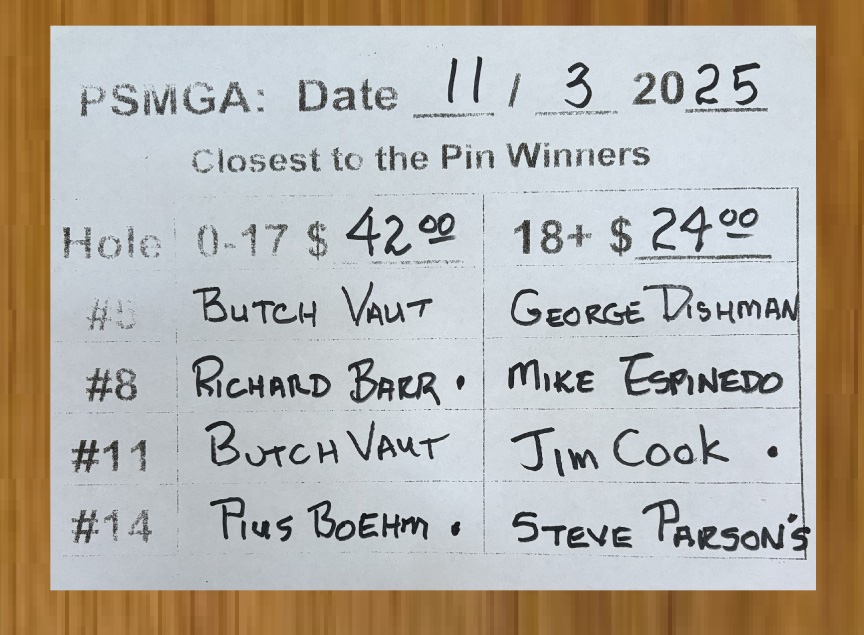 PSMGA: Date 11 / 3 2025
Closest to the Pin Winners
Hole 0-17 $ 42.00 18+ $ 24.00
#5 BUTCH VAUT GEORGE DISHMAN
#8 RICHARD BARR • MIKE ESPINEDO
#11 BUTCH VAUT JIM COOK •
#14 PIUS BOEHM • STEVE PARSON'S